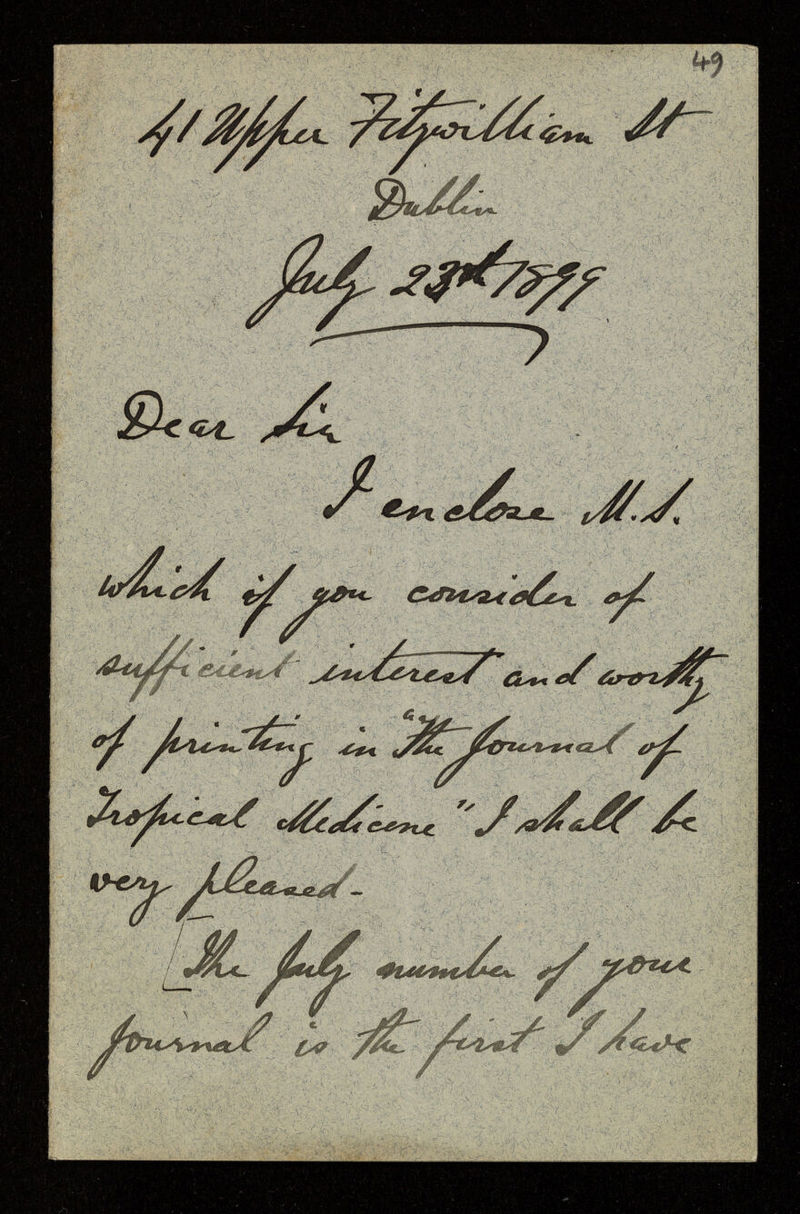 49
41 Upper Fitzwilliam St
Dublin
July 23rd 1899
Dear Sir
I enclose M.S.
which if you consider of
sufficient interest and worthy
of printing in "The Journal of
Tropical Medicine" I shall be
very pleased -
[The July number of your
Journal is the first I have